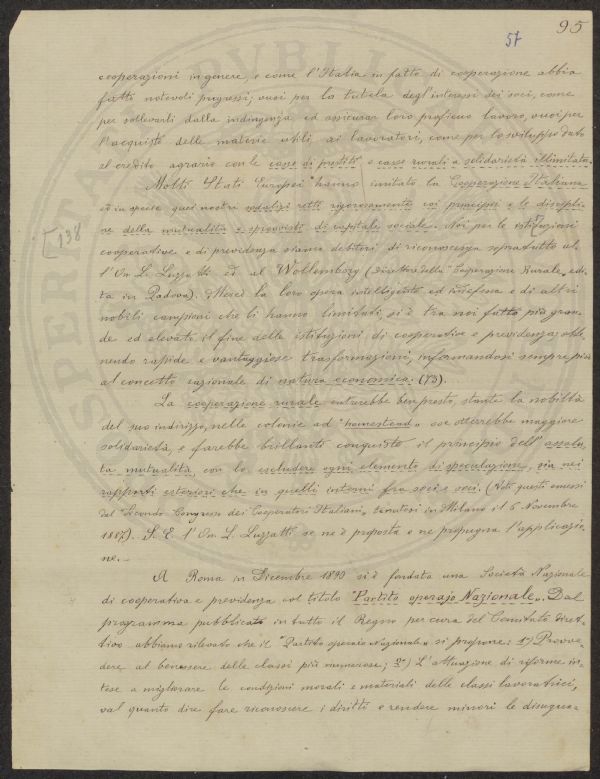 95
57
cooperazioni in genere, e come l'Italia in fatto di cooperazione abbia
fatti notevoli progressi; vuoi per la tutela degl'interessi dei soci, come
per sollevarli dalla indingenza ed assicurar loro proficuo lavoro, vuoi per
l'acquisto delle materie utili, ai lavoratori, come per lo sviluppo dato
al credito agrario con le casse di prestiti e casse rurali a solidarietà illimitata.
Molti Stati Europei hanno imitato la Cooperazione Italiana
ed in specie quei nostri sodalizi retti rigorosamente coi principii e le discipli-
ne della mutualità e sprovvisti di capitale sociale. Noi per le istituzioni
[138
cooperative e di previdenza siamo debitori di riconoscenza sopratutto al-
l'On L. Luzzatti ed al Wollemborg (Direttore della "Cooperazione Rurale, edi-
ta in Padova). Mercè la loro opera intelligente ed indefessa e di altri
nobili campioni che li hanno imitati, si è tra noi fatto più gran-
de ed elevato il fine delle istituzioni di cooperative e previdenza, otte-
nendo rapide e vantaggiose trasformazioni, informandosi sempre più
al concetto razionale di natura economica. (73).
La cooperazione rurale entrerebbe ben presto, stante la nobiltà
del suo indirizzo, nelle colonie ad "homestead" ove otterrebbe maggiore
solidarietà, e farebbe brillanti conquiste il principio dell'assolu-
ta mutualità, con lo escludere ogni elemento di speculazione, sia nei
rapporti esteriori che in quelli interni fra soci e soci. (Voti questi emessi
dal Secondo Congresso dei Cooperatori Italiani, tenutosi in Milano il 5 Novembre
1887). S. E. l'On L. Luzzatti se ne è proposta e ne propugna l'applicazio-
ne.—
A Roma in Dicembre 1890 si è fondata una Società Nazionale
di cooperativa e previdenza col titolo "Partito operajo Nazionale". Dal
programma pubblicato in tutto il Regno per cura del Comitato diret-
tivo abbiamo rilevato che il "Partito operaio Nazionale" si propone: 1°) Provve-
dere al benessere delle classi più numerose; 2°) L'attuazione di riforme in-
tese a migliorare le condizioni morali e materiali delle classi lavoratrici,
val quanto dire fare riconoscere i diritti e rendere minori le disugua-